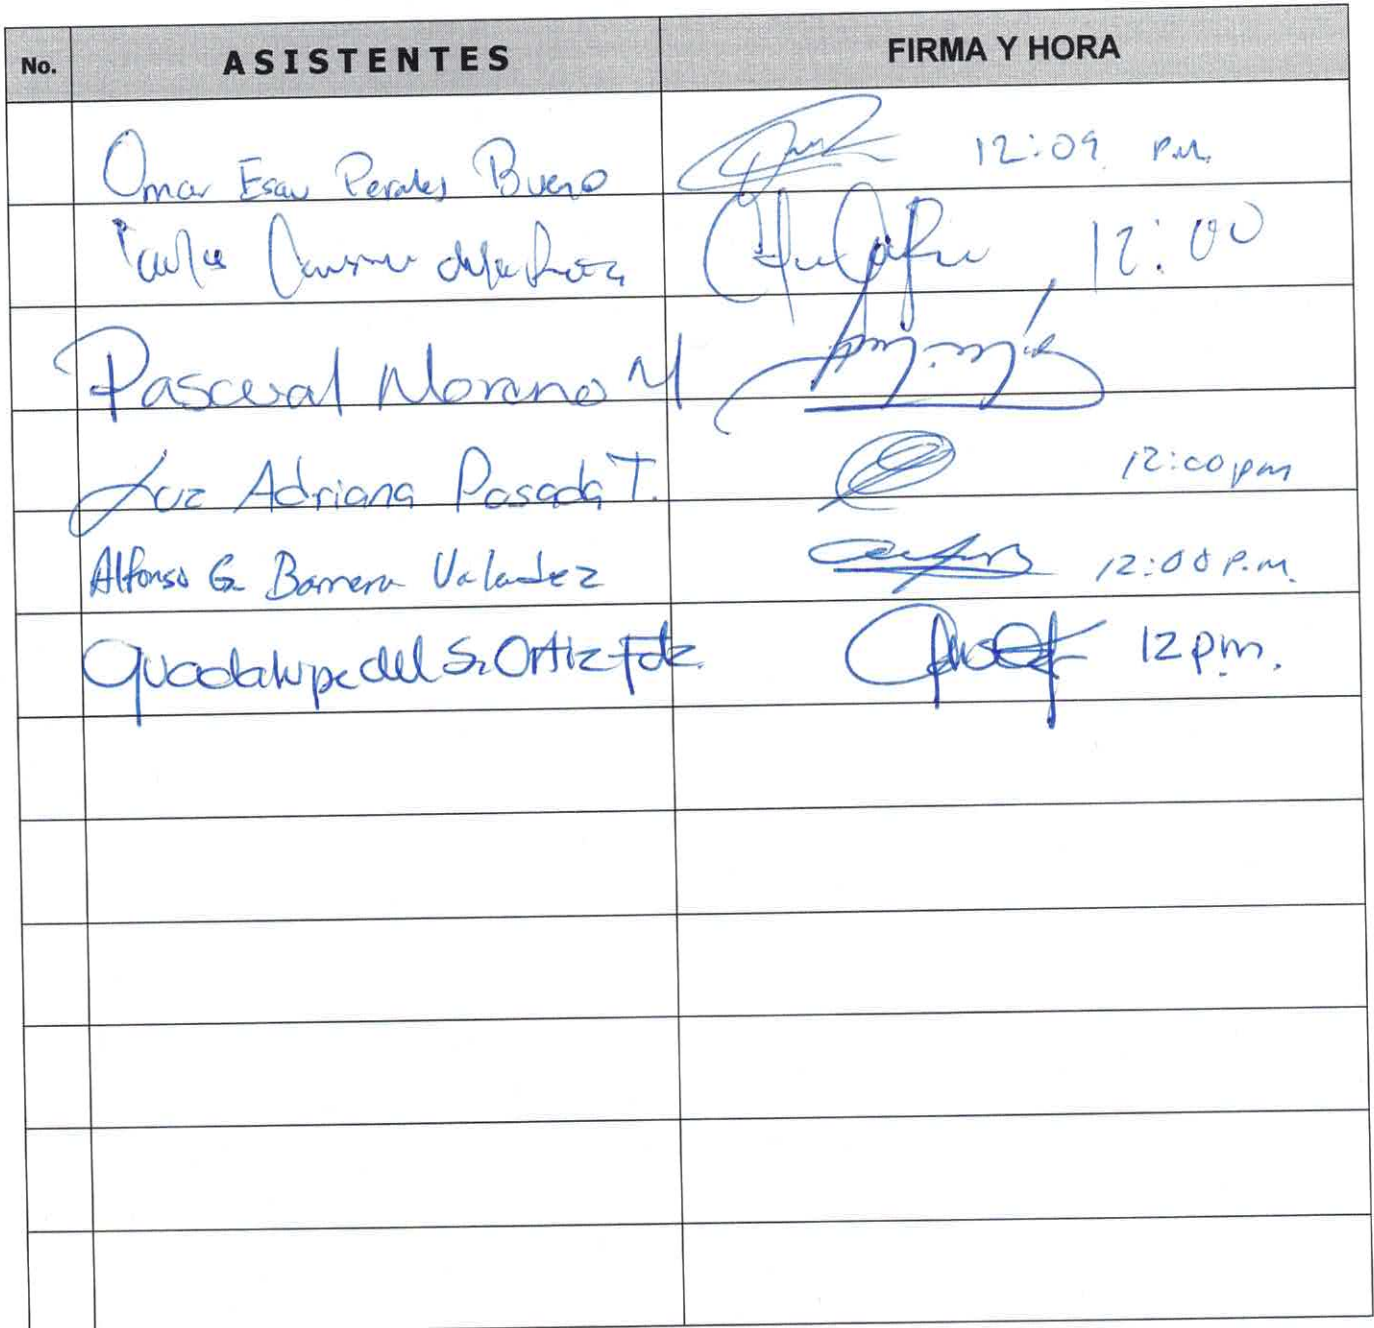 No. ASISTENTES FIRMA Y HORA
Omar Esau Perales Bueno 12:09 P.M.
12:00
Pascual Moreno M
Luz Adriana Posada T. 12:00 pm
Alfonso G. Barrera 12:00 P.M.
Guadalupe del S. Ortiz Fdz. 12 pm.